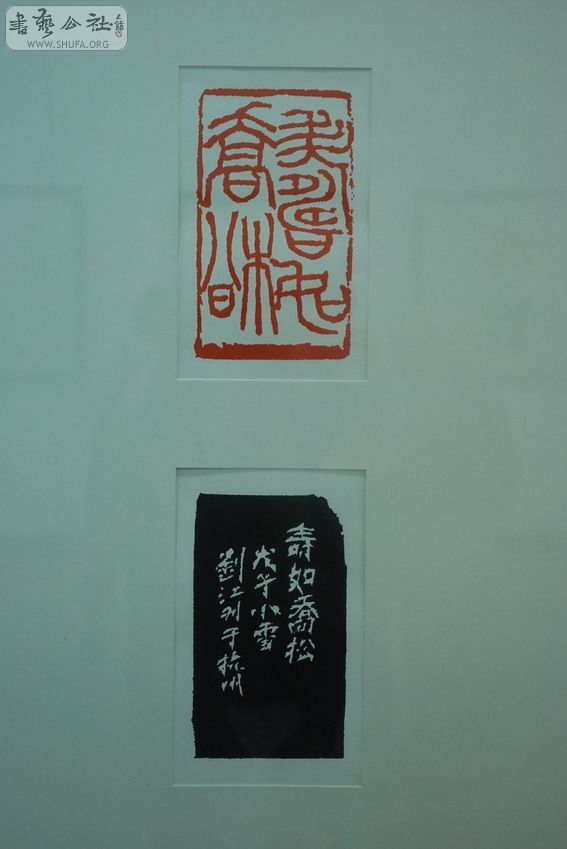 書藝公社
WWW.SHUFA.ORG
壽如
喬松
壽如喬松
戊子小雪
劉江刊于杭州